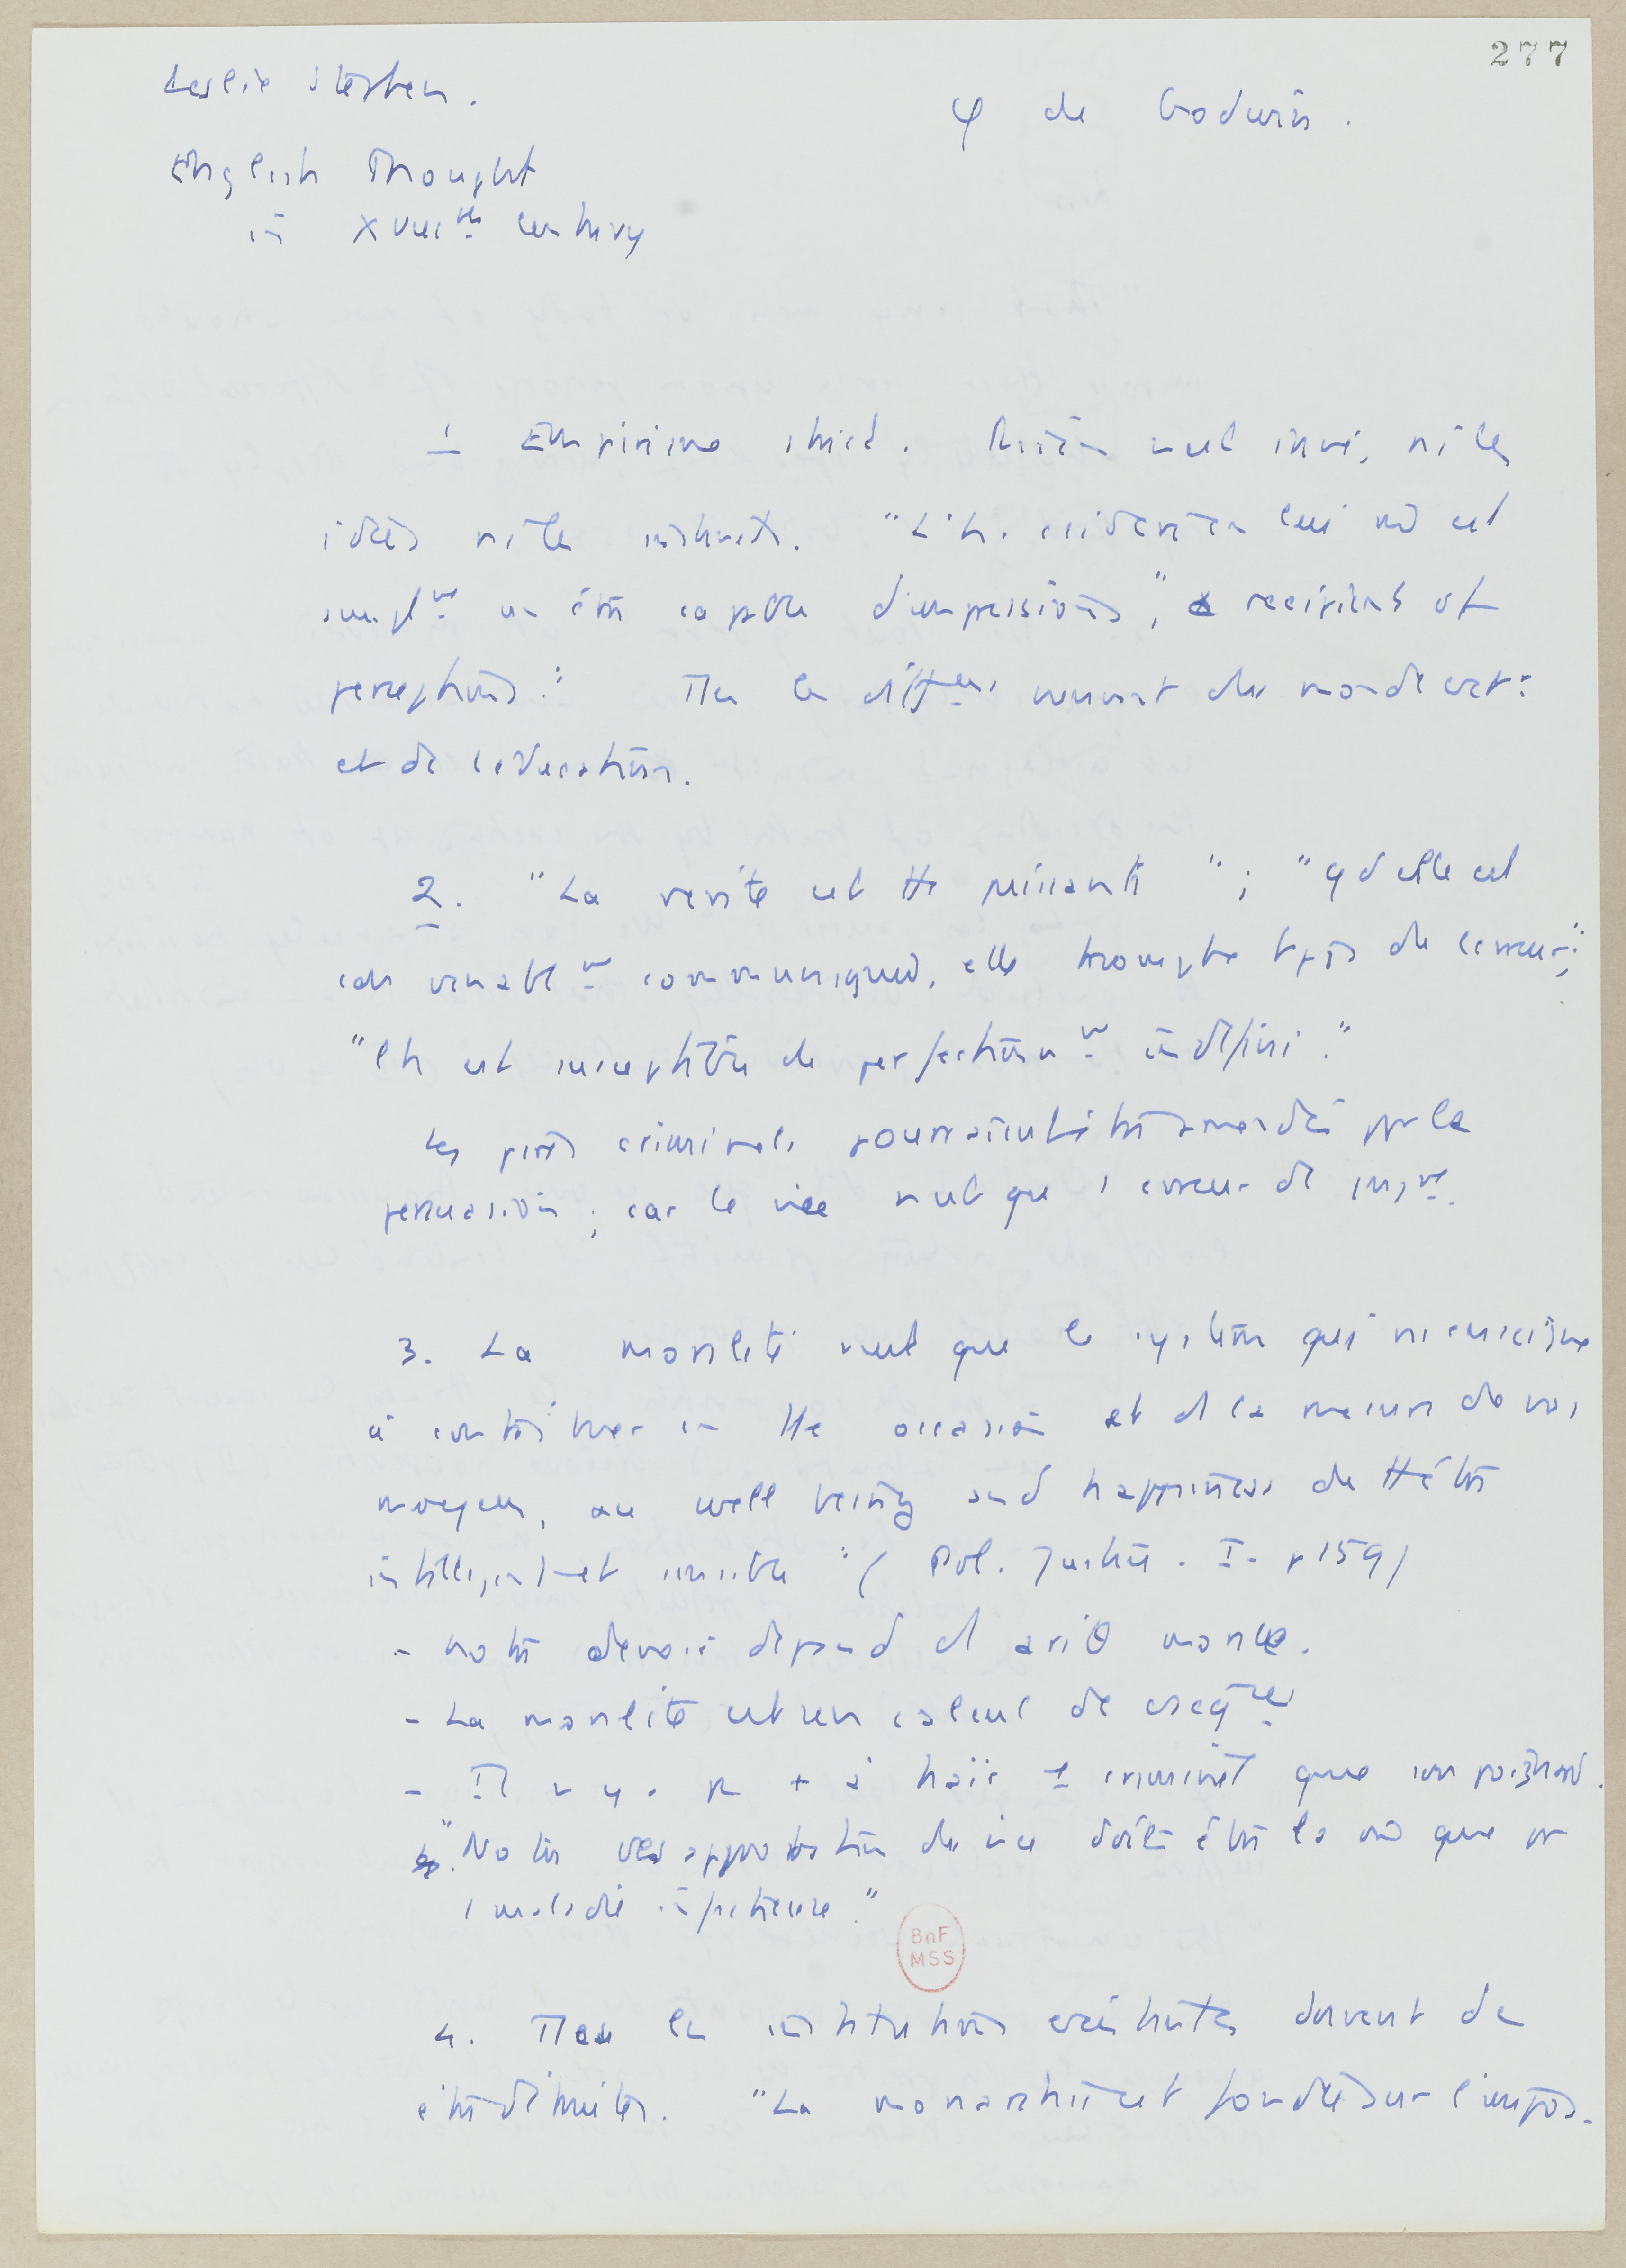 277
Leslie Stephen.
φ de Godwin.
English Thought
in XVIIIth Century
1 Empirisme strict. Rien n'est inné, ni les
idées ni les instincts. "L'h. considéré en lui mê est
simplt un être capable d'impressions", a recipient of
perceptions". Ttes les diffces venant du monde ext.
et de l'éducation.
2. "La vérité est tte puissante" ; "qd elle est
convenablt communiquée, elle triomphe tjrs de l'erreur";
"l'h est susceptible de perfectionnt indéfini."
Les pires criminels pourraient être amendés par la
persuasion ; car le vice n'est que 1 erreur de jugt.
3. La moralité n'est que le système qui ns enseigne
à contribuer en tte occasion et ds la mesure de nos
moyens, au well being and happiness de tt être
intelligent et sensible" (Pol. Justice. I. p 159)
- Notre devoir dépend d'1 arithmorale.
- La moralité est un calcul de cseqces
- Il n'y a pas + à haïr 1 criminel que son poignard.
"Notre désapprobation du vice doit être la mê que pr
1 maladie infectieuse."
BnF
MSS
4. Ttes les institutions existantes doivent de
être détruites. "La monarchie est fondée sur l'impos-